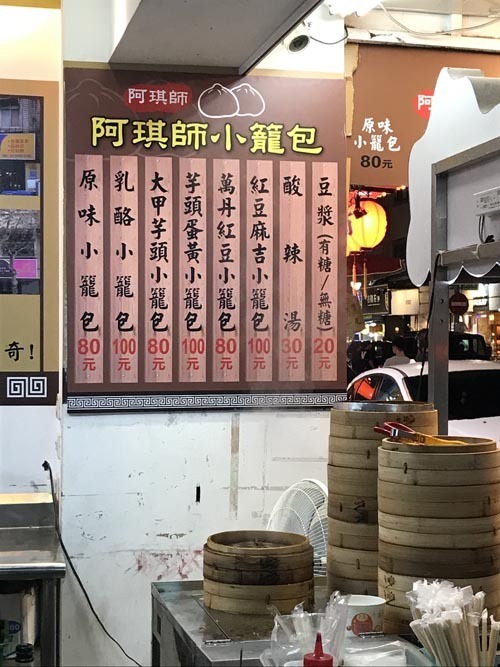 阿琪師
阿琪師小籠包
原味小籠包
80元
乳酪小籠包
100元
大甲芋頭小籠包
80元
芋頭蛋黃小籠包
100元
萬丹紅豆小籠包
80元
紅豆麻吉小籠包
100元
酸辣湯
30元
豆漿(有糖/無糖)
20元
阿
原味
小籠包
80元
奇!